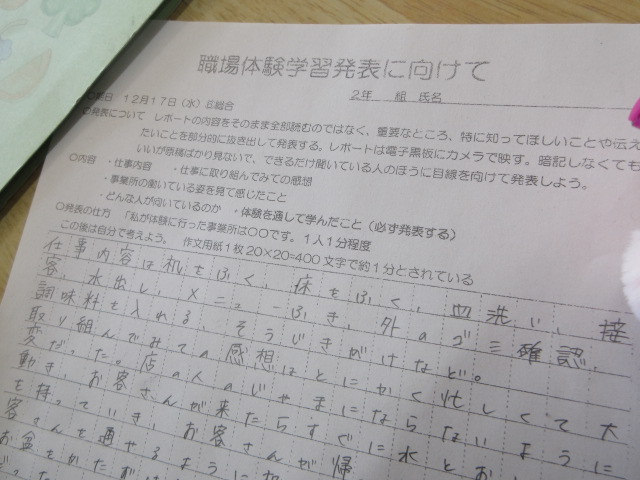 職場体験学習発表に向けて
日 12月17日（水）⑥総合 2年 組 氏名
○発表について レポートの内容をそのまま全部読むのではなく、重要なところ、特に知ってほしいことや伝え
たいことを部分的に抜き出して発表する。レポートは電子黒板にカメラで映す。暗記しなくても
いいが原稿ばかり見ないで、できるだけ聞いている人のほうに目線を向けて発表しよう。
○内容 ・仕事内容 ・仕事に取り組んでみての感想
・事業所の働いている姿を見て感じたこと
・どんな人が向いているのか ・体験を通して学んだこと（必ず発表する）
○発表の仕方 「私が体験に行った事業所は○○です。1人1分程度
この後は自分で考えよう。 作文用紙1枚 20×20=400 文字で約1分とされている
仕事内容は机をふく、床をふく、皿洗い、接
客、水出し、メニューふき、外のゴミ確認、
調味料を入れる、そうじきがけなど。
取り組んでみての感想はとにかく忙しくて大
変だった。店の人のじゃまにならないように
動き、お客さんが来たらすぐに水とお
を持っていき、お客さんが帰
客さんを通せるように
お盆をかたずけ